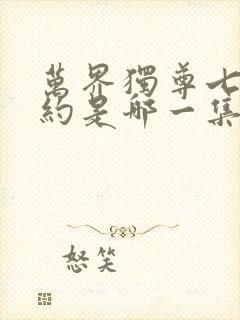 萬界獨尊七
約是哪一集
怒笑